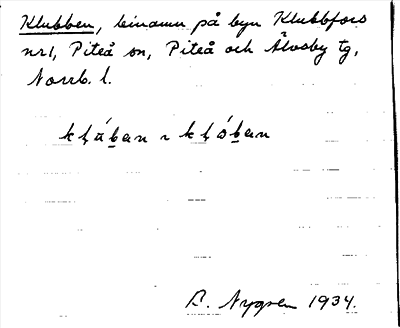 Klubben, binamn på byn Klubbfors
nr1, Piteå sn, Piteå och Älvsby tg,
Norrb. l.
A. Nygren 1934.